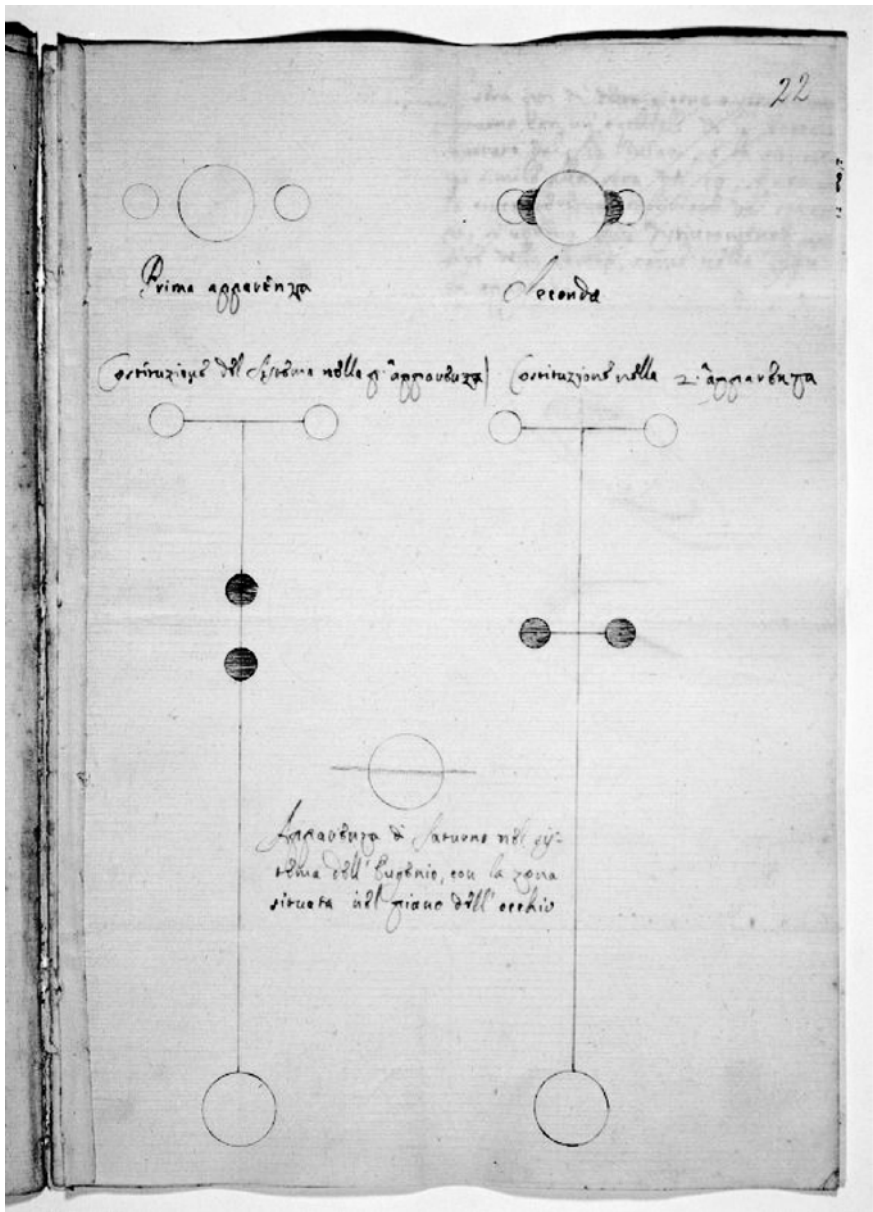 22
Prima apparenza
Seconda
Costituzione del Sistema nella p.ª apparenza
Costituzione nella 2.ª apparenza
Apparenza di Saturno nel sis-
tema dell' Eugenio, con la zona
situata nel piano dell' occhio